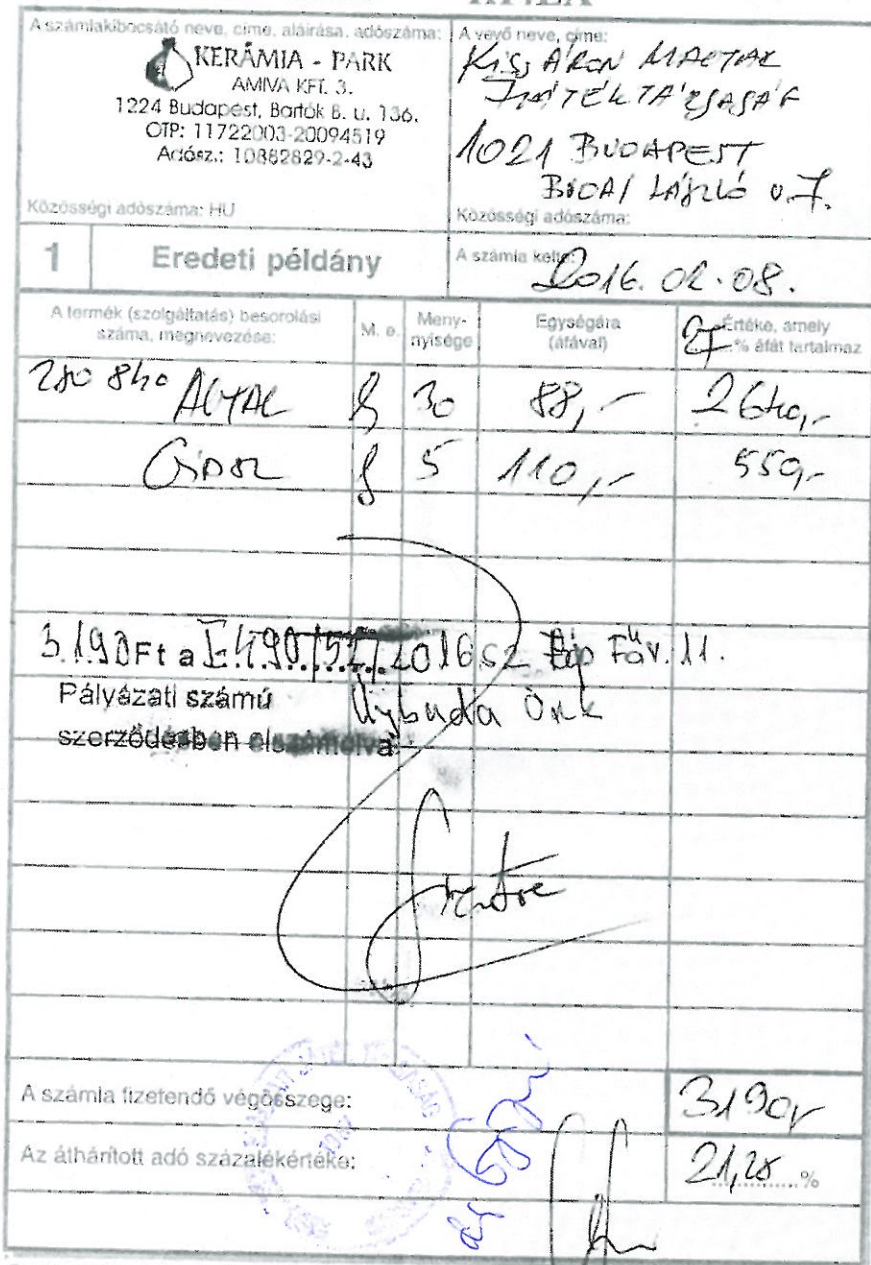 A számlakibocsátó neve, címe, aláírása, adószáma:
KERÁMIA - PARK
AMIVA KFT. 3.
1224 Budapest, Bartók B. u. 136.
OTP: 11722003-20094519
Adósz.: 10882829-2-43
Közösségi adószáma: HU
A vevő neve, címe:
KISS ÁRON MAGYAR
JÁTÉKTÁRSASÁG
1021 BUDAPEST
BUDAI LÁSZLÓ u. 7.
Közösségi adószáma:
1 Eredeti példány
A számla kelte:
2016. 02. 08.
A termék (szolgáltatás) besorolási száma, megnevezése:
M. e.
Meny-nyisége
Egységára (áfával)
27 Értéke, amely ...% áfát tartalmaz
AGYAG 30 88,- 2640,-
5 110,- 550,-
3.190 Ft a 2016 sz Főv. 11.
Pályázati számú Újbuda Önk
szerződésben elszámolva
A számla fizetendő végösszege: 3190,-
Az áthárított adó százalékértéke: 21,26 %